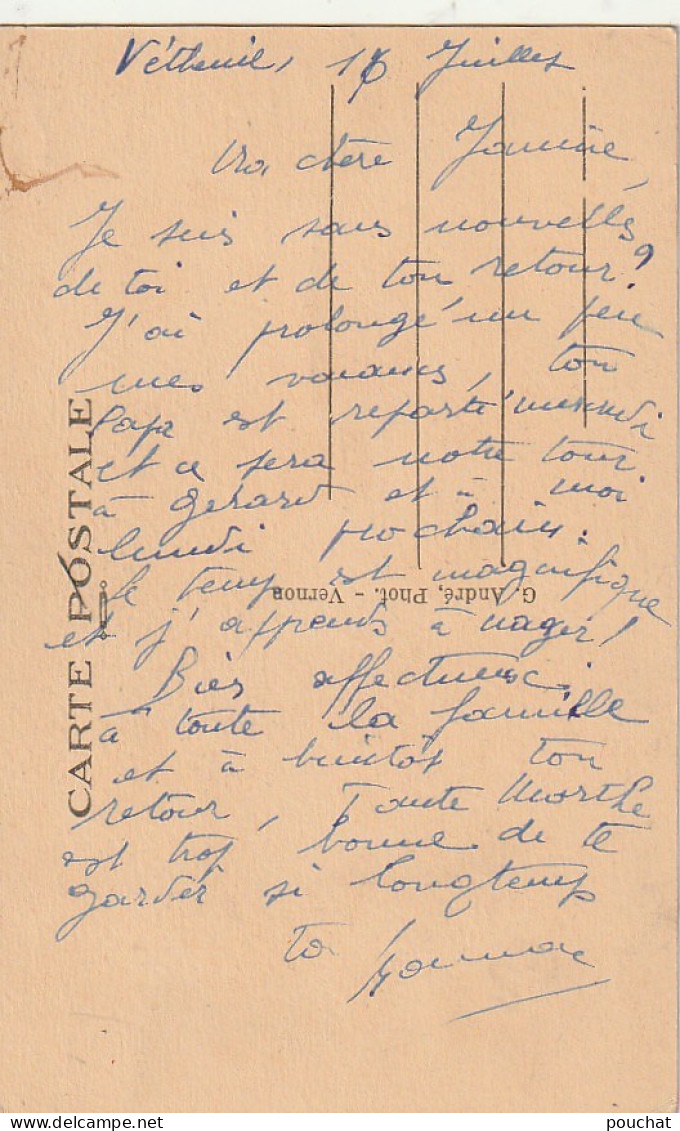 Vétheuil, 16 Juillet
Ma chère Janine,
Je suis sans nouvelles
de toi et de ton retour?
J'ai prolongé un peu
mes vacances, ton
Papa est reparti mercredi
et ce sera notre tour
à Gérard et à moi
lundi prochain.
Le temps est magnifique
et j'apprends à nager!
Bien affectueus.
à toute la famille
et à bientôt ton
retour, Tante Marthe
est trop bonne de te
garder si longtemps
ta
CARTE POSTALE
G. André, Phot. - Vernon
pouchat